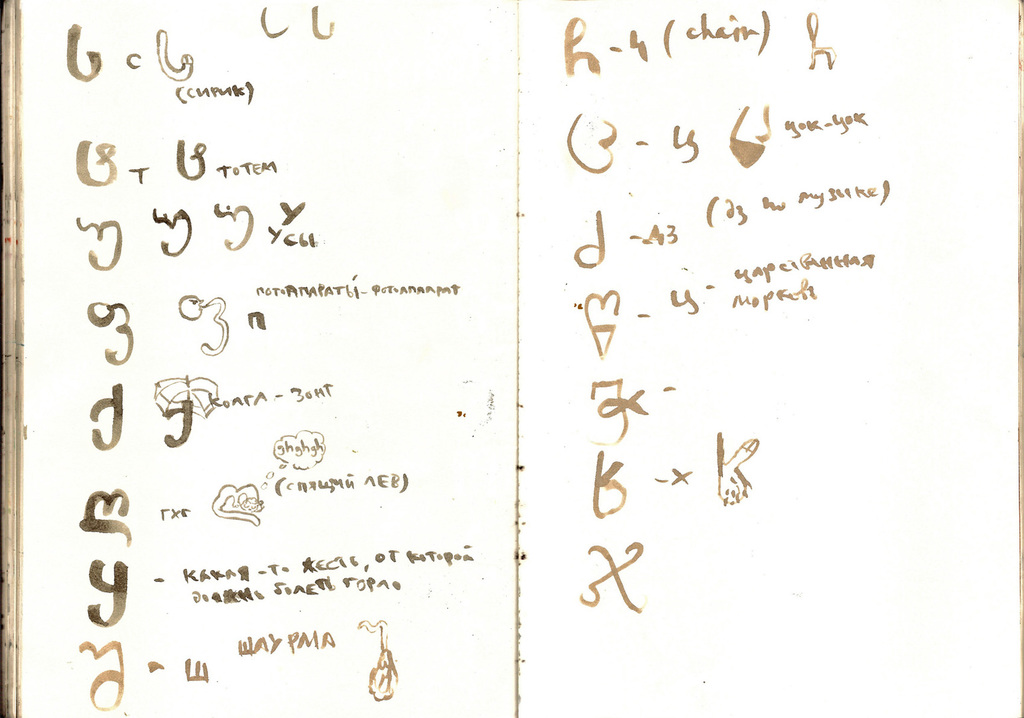 ს с ს
(сирик)
ტ т ტ тотем
უ უ უ У
усы
ფ ფ п
потоапираты - фотоаппарат
ქ ქ колга - зонт
ghghgh
ღ гхг (спящий лев)
ყ - какая-то жесть, от которой
должно болеть горло
შ - ш шаурма
ჩ - ч (chain) ჩ
ც - ц ც цок-цок
ძ - дз (дз по музыке)
წ - ц - царственная
морковь
ჭ -
ხ - х ხ
ჯ